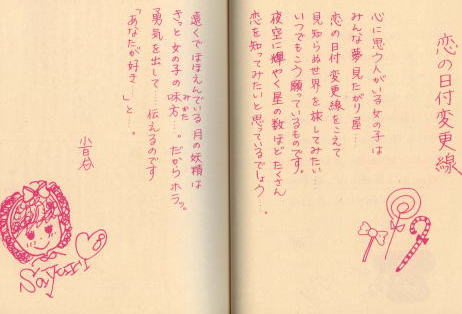 恋の日付変更線
心に思う人がいる女の子は
みんな夢見たがり屋…
恋の日付変更線をこえて
見知らぬ世界を旅してみたい…
いつでもこう願っているものです。
夜空に輝やく星の数ほどたくさん
恋を知ってみたいと思っているでしょう…。
遠くでほほえんでいる月の妖精は
みかた
きっと女の子の味方…。だからホラッ。
勇気を出して…伝えるのです
「あなたが好き…」と…。
小百合
Sayuri